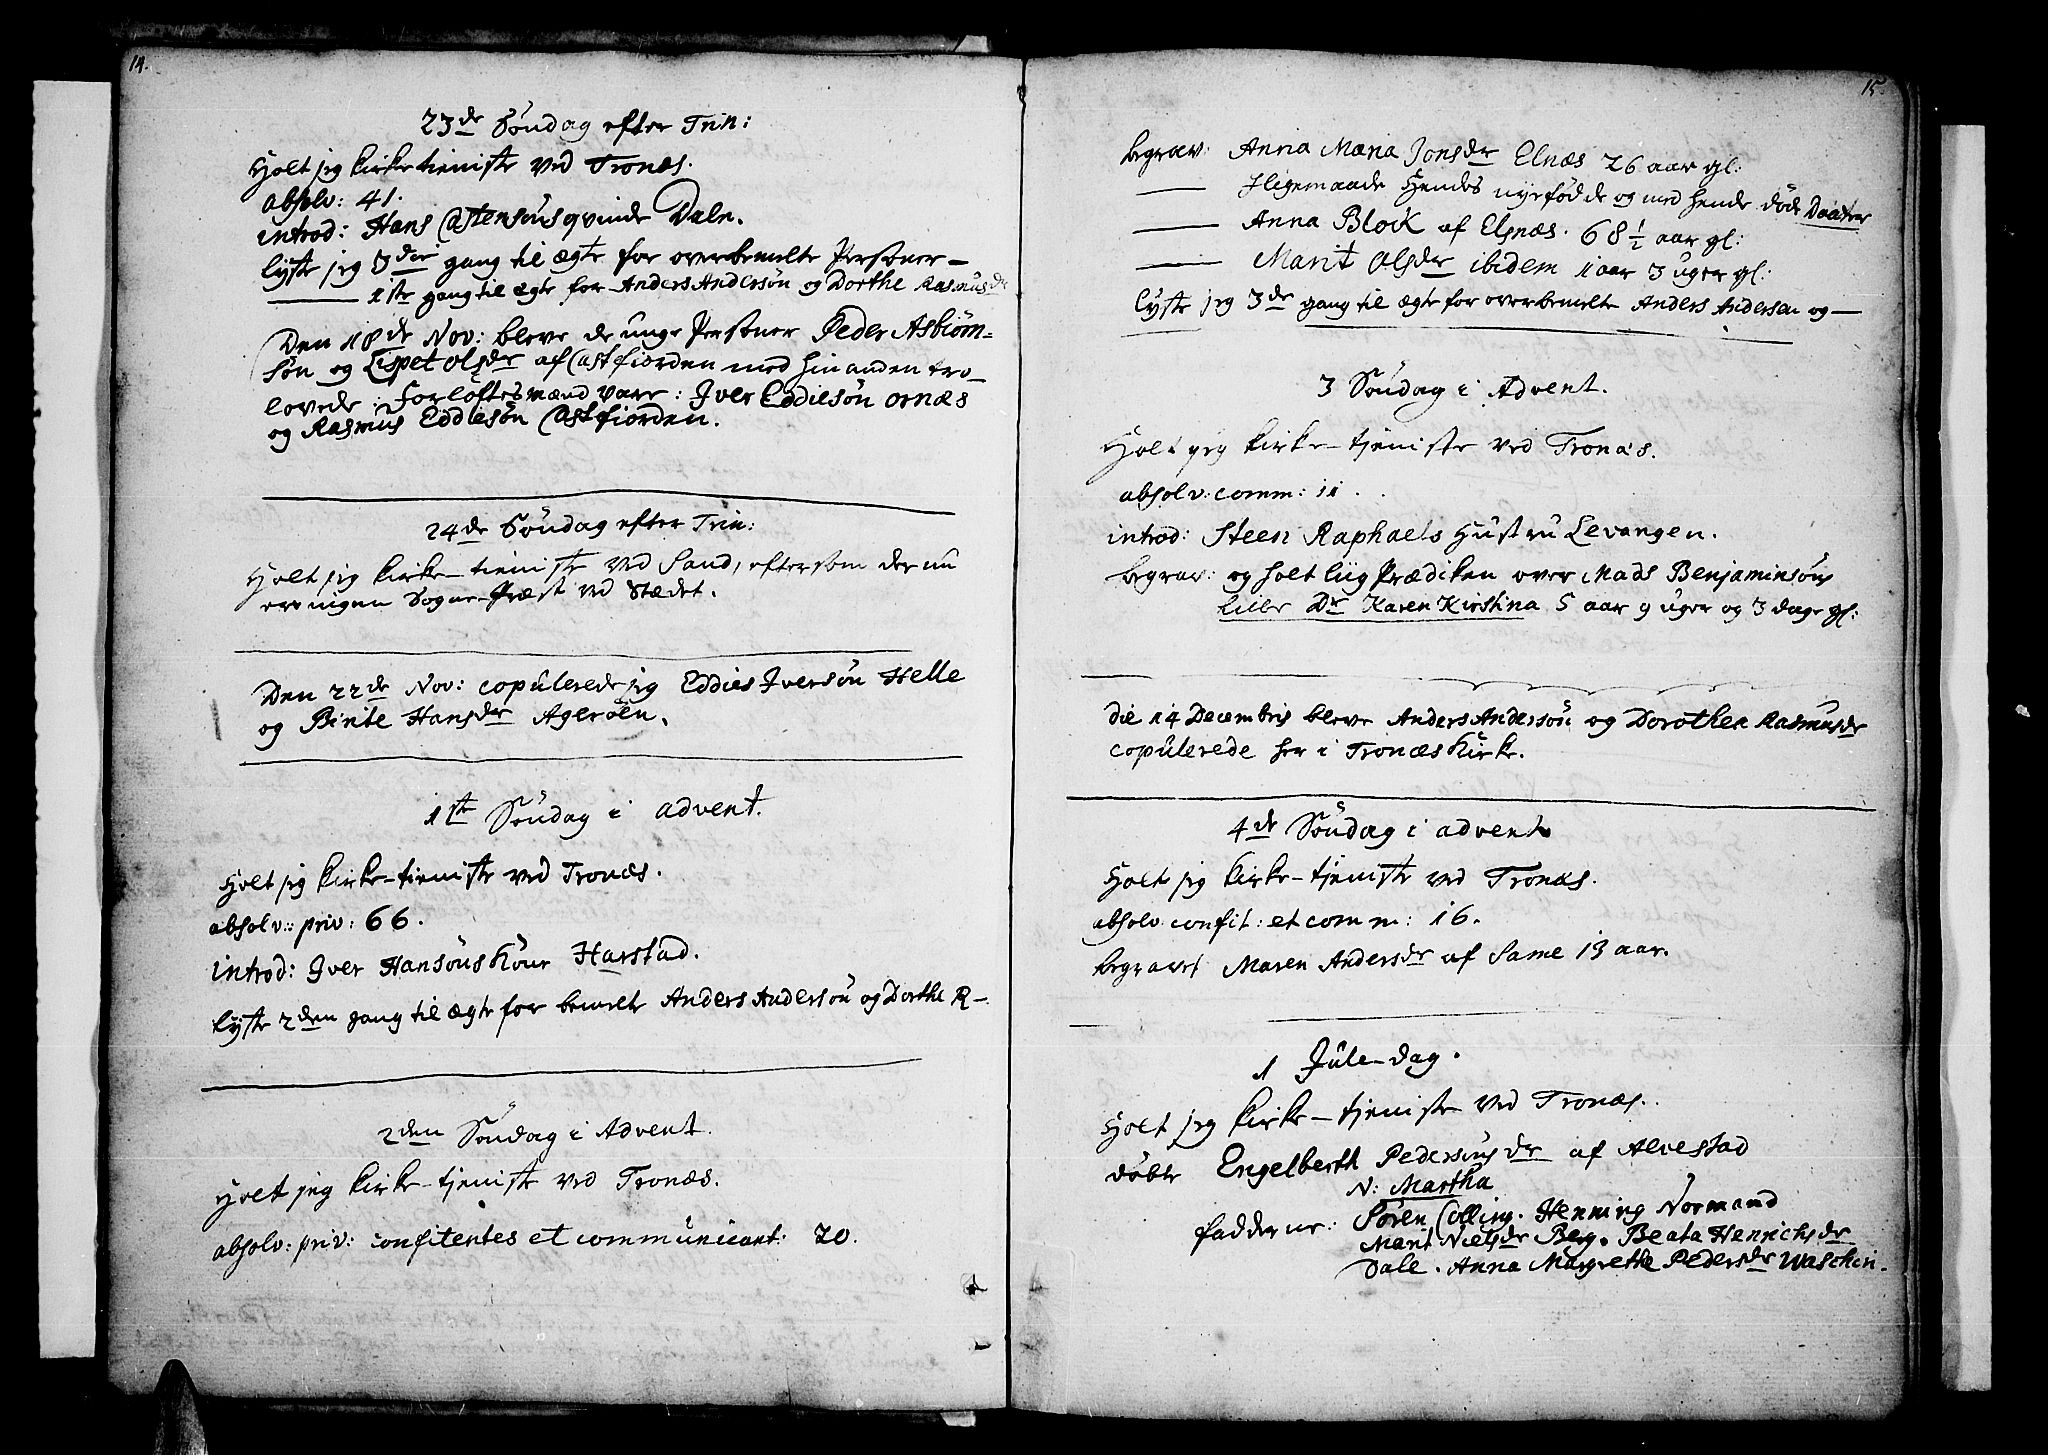 14.
23de Söndag efter Trin:
Holt jeg kirke tieniste ved Tronæs.
absolv: 41.
introd: Hans Ostensöns qvinde Dale.
lyste jeg 3die gang til ægte for overbemelte Personer —
——— 1ste gang til ægte for Anders Andersön og Dorthe Rasmusdr
Den 18de Nov: bleve de unge Personer Peder Asbiörn-
sön og Lispet Olsdr af Castfiorden med hinanden tro-
lovede: Forlöftesmænd vare: Iver Eddiesön ornæs
og Rasmus Eddiesön Castfiorden.
24de Söndag efter Trin:
Holt jeg kirke-tieniste ved Sand, eftersom der nu
er ingen Sogne-Præst ved Stædet.
Den 22de Nov: copulerede jeg Eddies Iversön Helle
og Birite Hansdr Ageröen.
1ste Söndag i advent.
Holt jeg kirke-tieniste ved Tronæs.
absolv: priv: 66.
introd: Iver Hansöns Kone Harstad.
lyste 2den gang til ægte for bemelte Anders Andersön og Dorthe R—
2den Söndag i Advent.
Holt jeg kirke-tjeniste ved Tronæs.
absolv: priv: confitentes et communicant: 20.
15.
begrav: Anna Maria Jonsdr Elnæs 26 aar gl:
—— Iligemaade Hendes nyefödde og med hende döde Daatter
—— Anna Block af Elgnæs. 68½ aar gl:
—— Marit Olsdr ibidem 1 aar 3 uger gl:
lyste jeg 3de gang til ægte for overbemelte Anders Andersen og —
3 Söndag i Advent.
Holt jeg kirke-tjeniste ved Tronæs.
absolv: comm: 11.
introd: Steen Raphaels Hustru Levangen.
begrav: og holt liig Prædiken over Mads Benjaminsöns
lille Dr Karen Kirstina 5 aar 9 uger og 3 dage gl:
die 14 Decembris bleve Anders Andersön og Dorothea Rasmusdr
copulerede her i Tronæs Kirke.
4de Söndag i advent
Holt jeg kirke-tjeniste ved Tronæs.
absolv: confit: et comm: 16.
begravet Maren Andersdr af Same 13 aar.
1 Jule-dag.
Holt jeg kirke-tjeniste ved Tronæs.
döbte Engelberth Pedersöns dr af Alvestad
N: Martha
fadderne: Sören Colling. Henning Normand
Marit Nielsdr Berg. Beata Henrichsdr
Dale. Anna Margrethe Pedersdr Waschin.